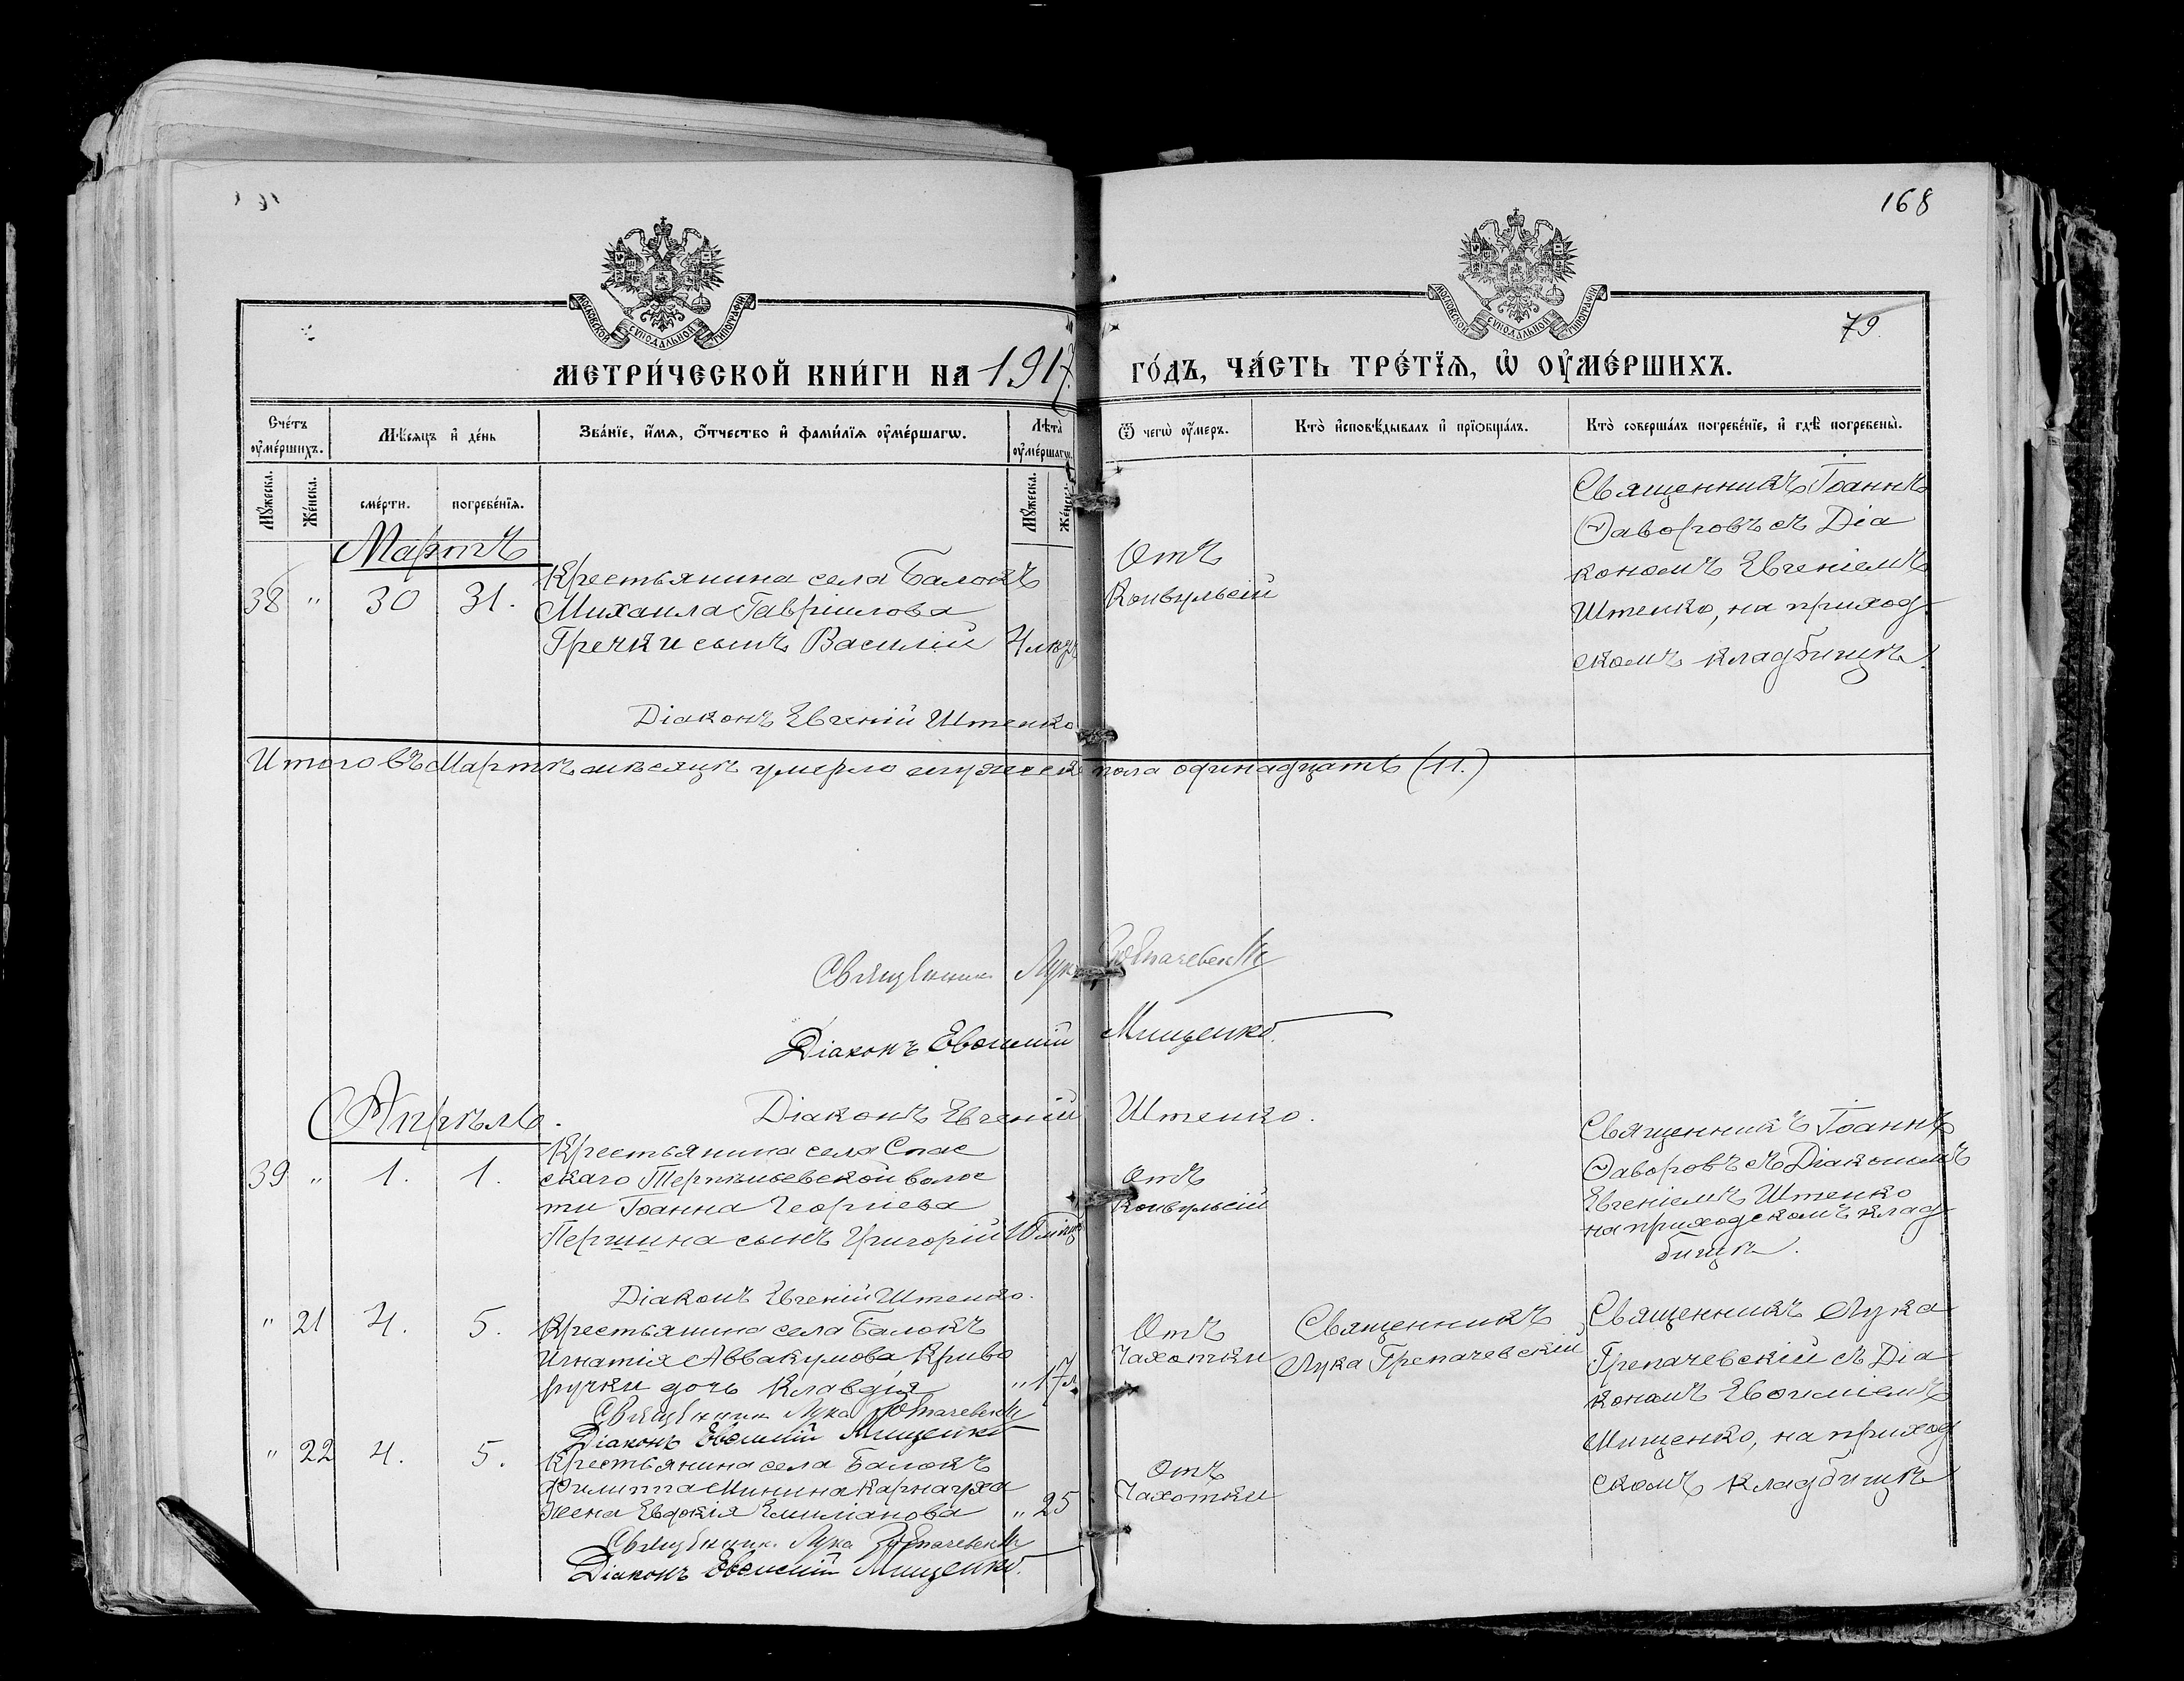 168
79.
МОСКОВСКОЙ СѴНОДАЛЬНОЙ ТИПОГРАФІИ
МОСКОВСКОЙ СѴНОДАЛЬНОЙ ТИПОГРАФІИ
МЕТРИ́ЧЕСКОЙ КНИ́ГИ НА 1917 ГО́ДЪ, ЧА́СТЬ ТРЕ́ТЇѦ, Ѡ҆ ОУ҆МЕ́РШИХЪ.
Сче́тъ оу҆ме́ршихъ.
Мѣ́сяцъ и҆ де́нь
Зва́нїе, и҆́мя, ѻ҆́тчество и҆ фамилїя оу҆ме́ршагѡ.
Лѣ̀та оу҆ме́ршагѡ.
Ѿ чегѡ̀ оу҆́меръ.
Кто̀ и҆сповѣ́дывалъ и҆ прїѡбща́лъ.
Кто̀ соверша́лъ погребе́нїе, и҆ гдѣ̀ погребены̀.
Мꙋ́жеска.
Же́нска.
сме́рти.
погребе́нїя.
Мꙋ́жеска.
Же́нска.
Мартъ
38 " 30 31.
Крестьянина села Балокъ
Михаила Гавріилова
Гречки сынъ Василій
Отъ
Конвульсій
Священникъ Іоаннъ
Ѳаворовъ съ Діа
кономъ Евгеніемъ
Штепко, на приход
скомъ кладбищѣ.
Діаконъ Евгеній Штепко
Итого въ Мартѣ мѣсяцѣ умерло мужеска пола одинадцать (11.)
Священник Лука
Діаконъ Евѳимій Мищенко.
Діаконъ Евгеній Штепко.
Апрѣль.
39 " 1. 1.
Крестьянина села Спас
скаго волос
ти Іоанна Георгіева
Першина сынъ Григорій
Отъ
Конвульсій
Священникъ Іоаннъ
Ѳаворовъ съ Діакономъ
Евгеніемъ Штепко
на приходскомъ клад
бищѣ.
Діаконъ Евгеній Штепко.
" 21 4. 5.
Крестьянина села Балокъ
Игнатія Аввакумова Криво
ручки дочь Клавдія " 17 л
Отъ
Чахотки
Священникъ
Лука Грепачевскій
Священникъ Лука
Грепачевскій съ Діа
кономъ Евѳиміемъ
Мищенко, на приход
скомъ кладбищѣ
Священник Лука
Діаконъ Евѳимій Мищенко
" 22 4. 5.
Крестьянина села Балокъ
Филиппа Минина Карнауха
жена Евдокія Емиліанова " 25
Отъ
Чахотки
Священник Лука
Діаконъ Евѳимій Мищенко.